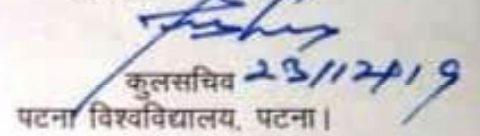 कुलसचिव 23/12/19
पटना विश्वविद्यालय, पटना।